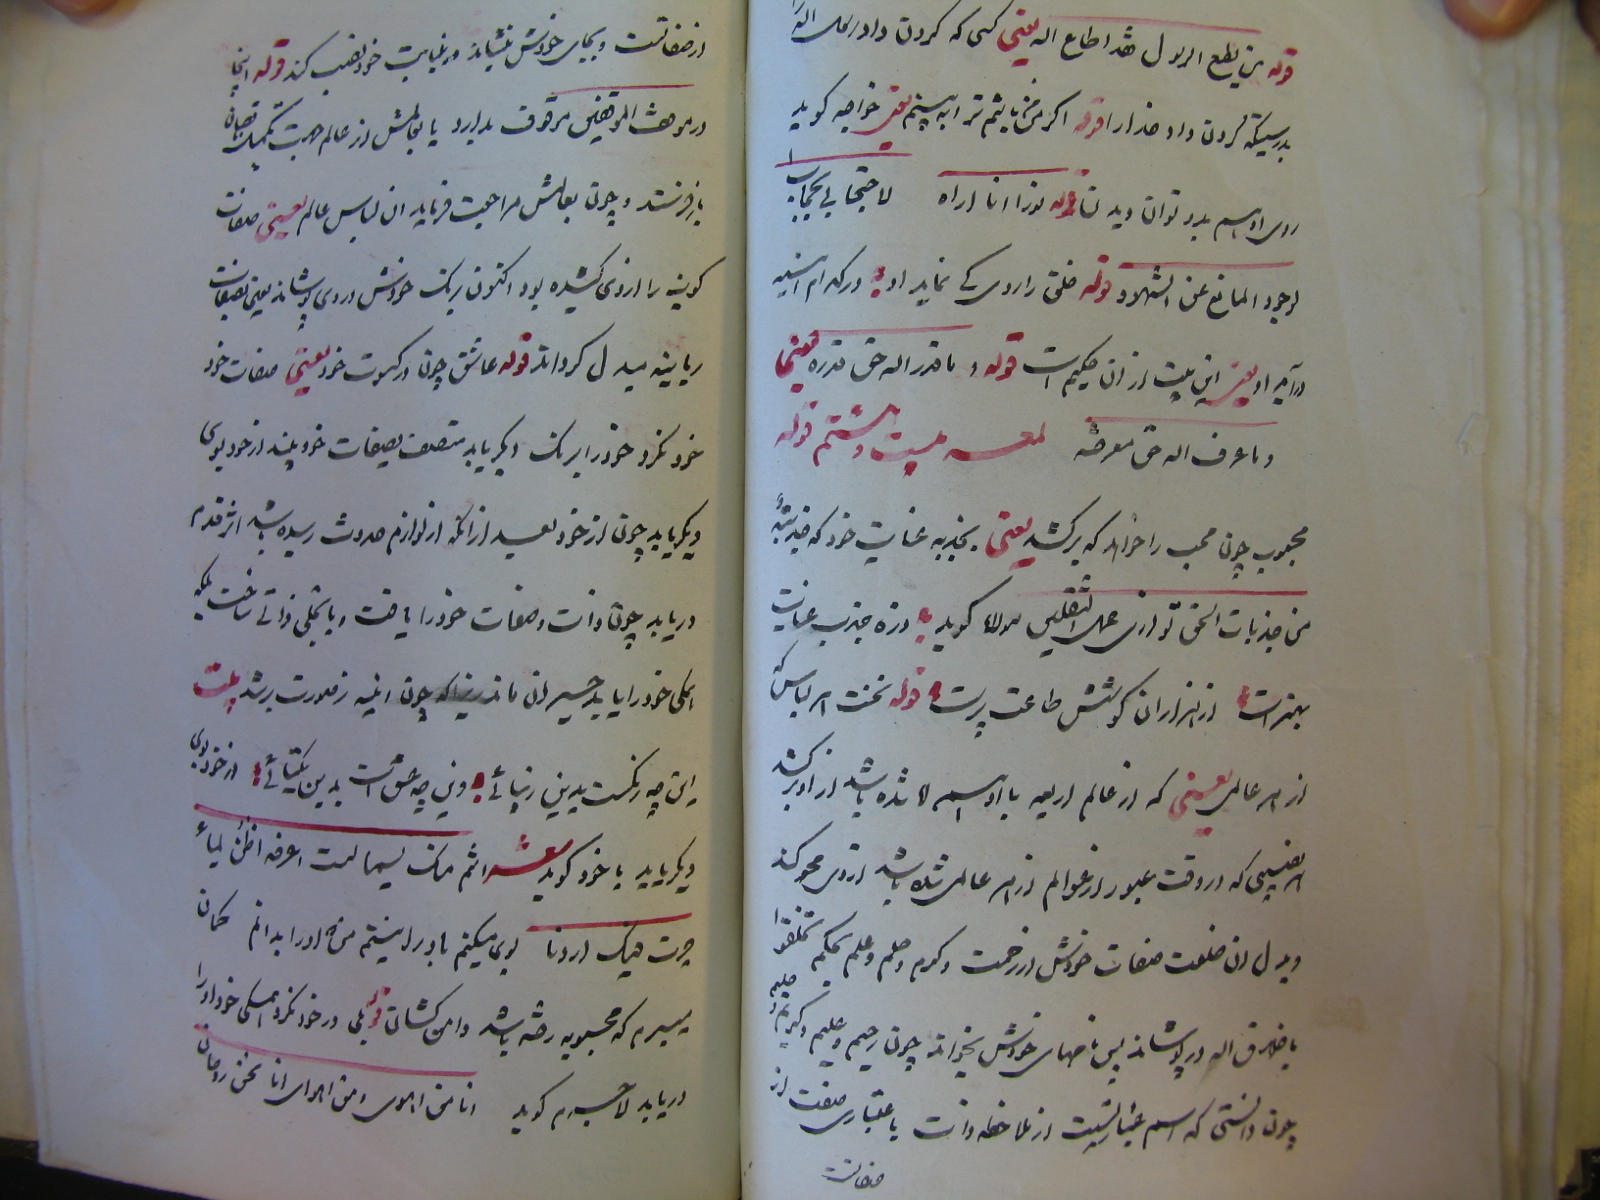 قوله من یطع الرسول فقد اطاع اله یعنی کسی که کردن داد رسول اله را
بدرستیکه کردن داد خدا را قوله اکر من بایتم ترا به بینم یعنی خواجه کوید
روی او هم بدو توان دید قوله نوزا انا اراه لا حتجابی بحجاب
لوجود المانع عن الشهود قوله خلق را روی کی نماید او در کدام اینه
در آید او یعنی این بیت از ان حکیم است قوله و ما قدر اله حق قدره یعنی
و ما عرف اله حق معرفته لمعه بیست و هشتم قوله
محبوب چون محب را خواهد که برکشد یعنی بجذبه عنایت خود که جذبة
من جذبات الحق توازی عمل الثقلین مولانا کوید ذره جذب عنایت
بهتر است از هزاران کوشش طاعت پرست قوله نخست هر لباس که
از هر عالمی یعنی که از عالم اربعه با او همراه شده باشد از او برکشد
هر نصیبی که در وقت عبور از عوالم از هر عالمی شده باشد از وی محو کند
و بدل ان خلعت صفات خودش از رحمت و کرم و حلم و علم بحکم تخلقوا
باخلاق اله در پوشاند پس بنامهای خودش بخواند چون رحیم و علیم و کریم و حلیم
چون دانستی که اسم عبارتست از ملاحظه ذات باعتباری صفت از
صفات
از صفاتست و بجای خودش بنشاند و بنیابت خود نصب کند قوله اینجا
در موقف المواقفش موقوف بدارد یا بعالمش از عالم جهت تکمیل ناقصان
باز فرستد و چون بعالمش مراجعت فرماید ان لباس عالم یعنی صفات
کونیه را از وی کشیده بود اکنون برنک خودش در وی پوشاند یعنی بصفات
ربانیه مبدل کرداند قوله عاشق چون در کسوت خود یعنی صفات خود
خود نکرد خود را برنک دیکر یابد متصف بصفات خود بیند از خود بوی
دیکر یابد چون از خود بعید از انکه از لوازم حدوث رسیده باشد اثر قدم
دریابد چون ذات و صفات خود را یافت و با تجلی ذاتی ساخت بلکه
همکی خود را یابد حیران ماند زیراکه چون اینه ز صورت برشد بیت
این چه رنکست بدین زیبائی وین چه عشق است بدین یکتائی از خود بوی
دیکر یابد با خود کوید شعر اشم منک نسیما لست اعرفه اظن لمیاء
جرت فیک اردانا بوی میکنم باد را نیستم من که او را بدانم کمان
میبرم که محبوبه رفته باشد دامن کشان قوله بلی در خود نکرد همکی خود او را
دریابد لاجرم کوید انا من اهوی و من اهوی انا نحن روحان